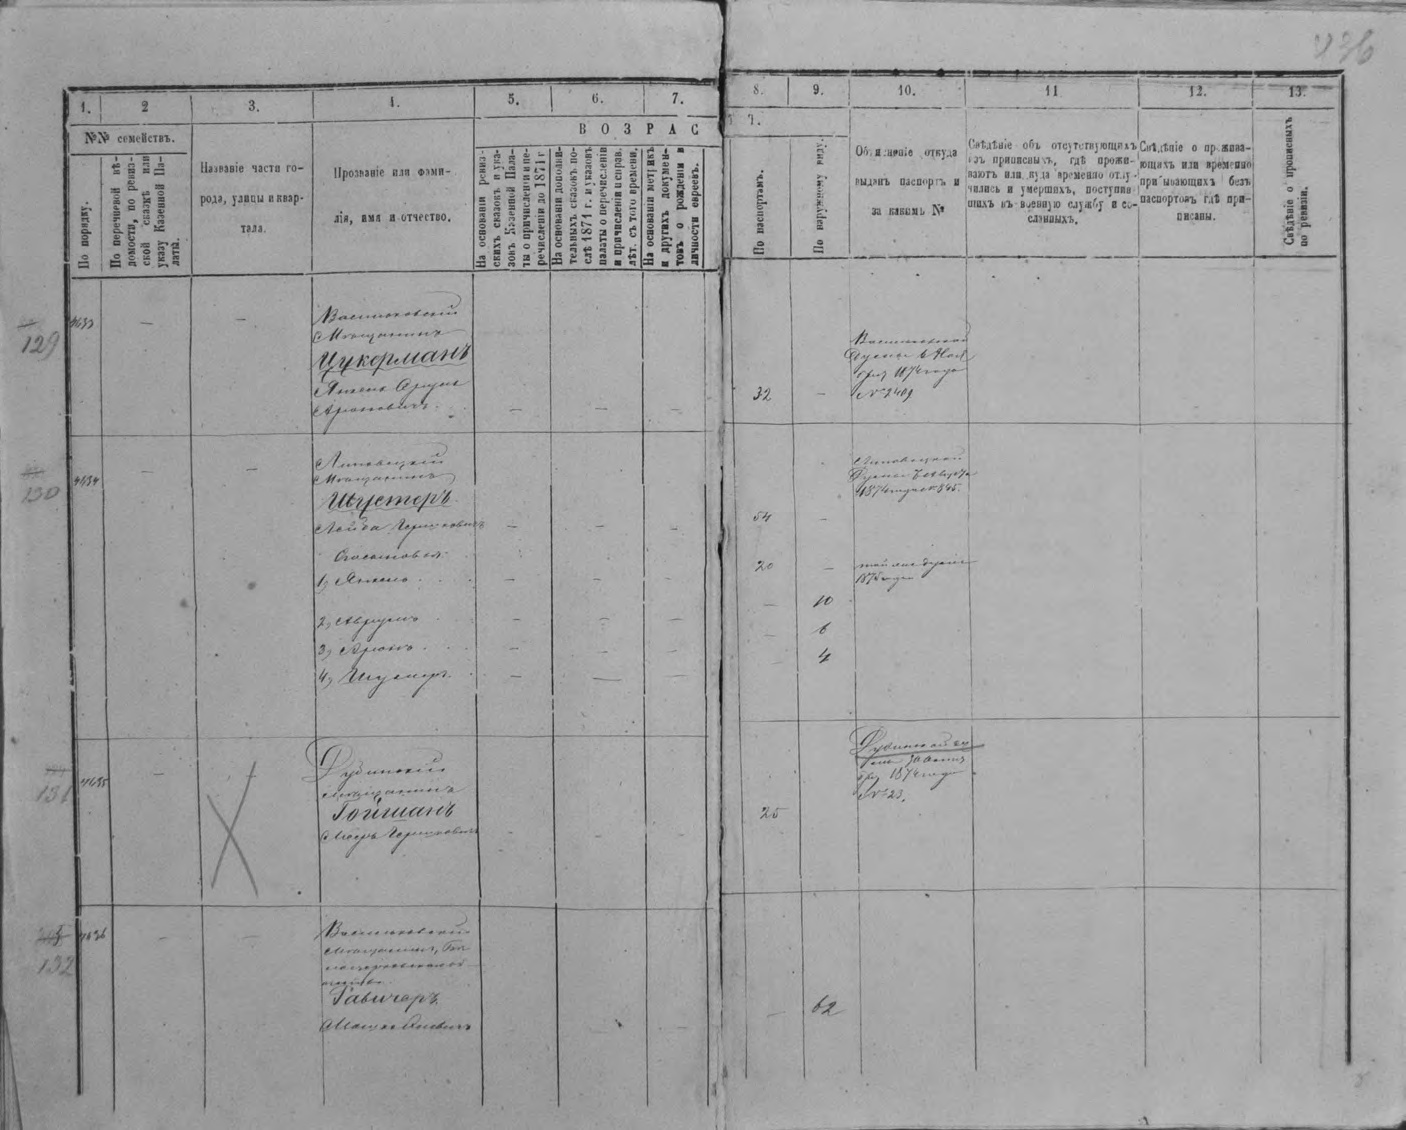 436
1. 2 3. 4. 5. 6. 7. 8. 9. 10. 11 12. 13.
№№ семействъ.
По порядку.
По перечневой вѣ-
домости, по ревиз-
ской сказкѣ или
указу Казенной Па-
латы.
Названіе части го-
рода, улицы и квар-
тала.
Прозваніе или фами-
лія, имя и отчество.
ВОЗРАС
Т.
На основаніи ревиз-
скихъ сказокъ и ука-
зовъ Казенной Пала-
ты о причисленіи и пе-
речисленіи до 1871 г
На основаніи дополни-
тельныхъ сказокъ по-
слѣ 1871 г. и указовъ
палаты о перечисленіи
и причисленіи и справ.
лѣт. съ того времени.
На основаніи метрикъ
и другихъ докумен-
товъ о рожденіи и
личности евреевъ.
По паспортамъ.
По наружному виду.
Объясненіе откуда
выданъ паспортъ и
за какимъ №
Свѣдѣніе объ отсутствующихъ
изъ приписныхъ, гдѣ прожи-
ваютъ или куда временно отлу-
чились и умершихъ, поступив
шихъ въ военную службу и со-
сланныхъ.
Свѣдѣніе о прожива-
ющихъ или временно
прибывающихъ безъ
паспортовъ гдѣ при-
писаны.
Свѣдѣніе о прописныхъ
по ревизіи.
129
4633 — —
Васильковскій
Мѣщанинъ
Цукерманъ
Янкель Сруль
Ароновичъ — — —
32 —
Васильковской
Думы 6 Нояб
ря 1874 года
№ 2409
130
4634 — —
Липовецкій
Мѣщанинъ
Шустеръ
Лейба Гершковичъ — — —
54 —
Липовецкой
Думы 7 Августа
1874 года № 845.
Сыновья
1) Янкель — — —
20 —
той же думы
1875 года
2) Аврумъ — — —
— 10
3) Аронъ — — —
— 6
4) Шулимъ — — —
— 4
131
4635 —
Дубинскій
мѣщанинъ
Гойшманъ
Мееръ Гершковичъ — — —
25
Дубинской
1874 года
№ 23.
132
4636 — —
Васильковскій
мѣщанинъ,
Равичеръ
Мошко — —
— 62